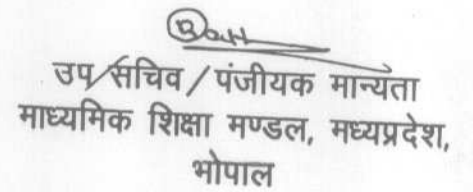 उप/सचिव/पंजीयक मान्यता
माध्यमिक शिक्षा मण्डल, मध्यप्रदेश,
भोपाल